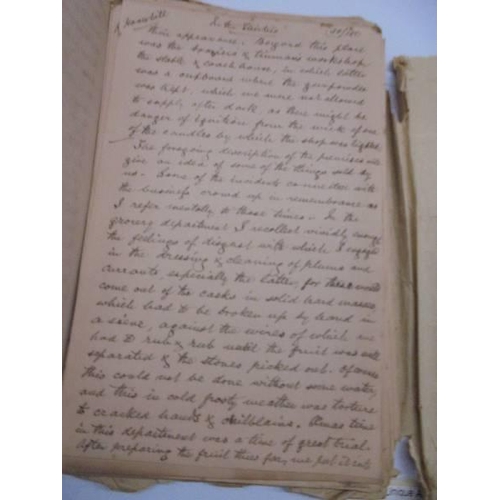 In the Sixties
their appearance. Beyond this place
was the braziers & tinmans workshop
the stable & coach house, in which latter
was a cupboard where the gunpowder
was kept, which we were not allowed
to supply after dark, as there might be
danger of ignition from the wick of one
of the candles by which the shop was lighted
The foregoing description of the premises will
give an idea of some of the things sold by
us - Some of the incidents connected with
the business crowd up in remembrance as
I refer mentally to those times - In the
grocery department I recollect vividly enough
the feelings of disgust with which I engaged
in the dressing & cleaning of plums and
currants especially the latter, for these would
come out of the casks in solid hard masses,
which had to be broken up by hand in
a sieve, against the wires of which we
had to rub & rub until the fruit was well
separated & the stones picked out. Of course
this could not be done without some water,
and this in cold frosty weather was torture
to cracked hands & chilblains. Xmas time
in this department was a time of great trial.
After preparing the fruit thus far, we put it out